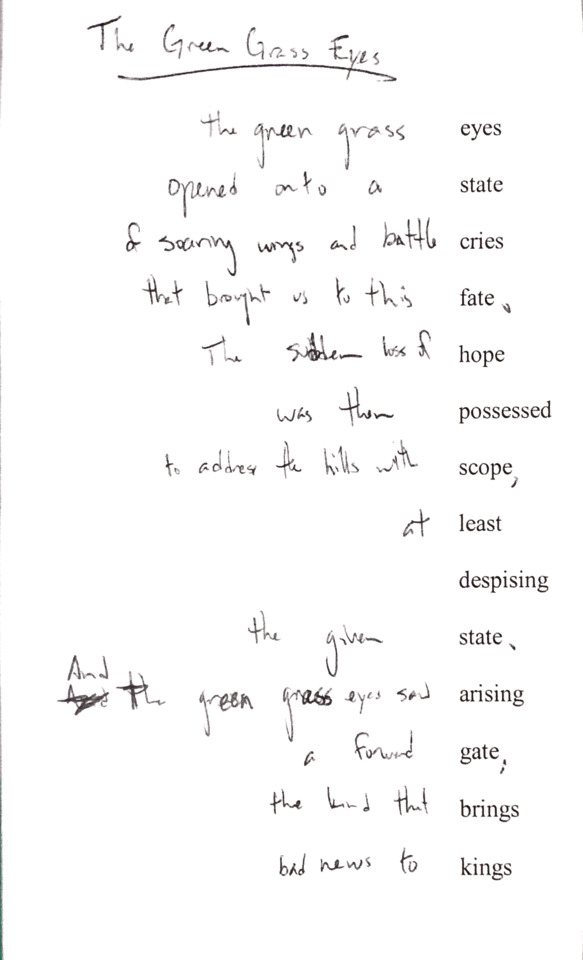 The Green Grass Eyes
the green grass eyes
opened onto a state
of soaring wings and battle cries
that brought us to this fate,
The sudden loss of hope
was then possessed
to address the hills with scope,
at least
despising
the given state,
And the green grass eyes said arising
a forward gate;
the kind that brings
bad news to kings